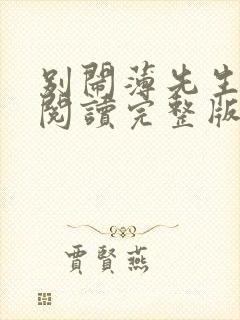 別鬧薄先生
閱讀完整版
賈賢燕